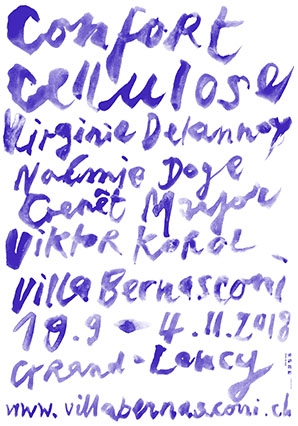 Confort
Cellulose
Virginie Delannoy
Noémie Doge
Gerêt Mayor
Viktor Korol
Villa Bernasconi
10.9 - 4.11.2018
Grand-Lancy
www.villabernasconi.ch